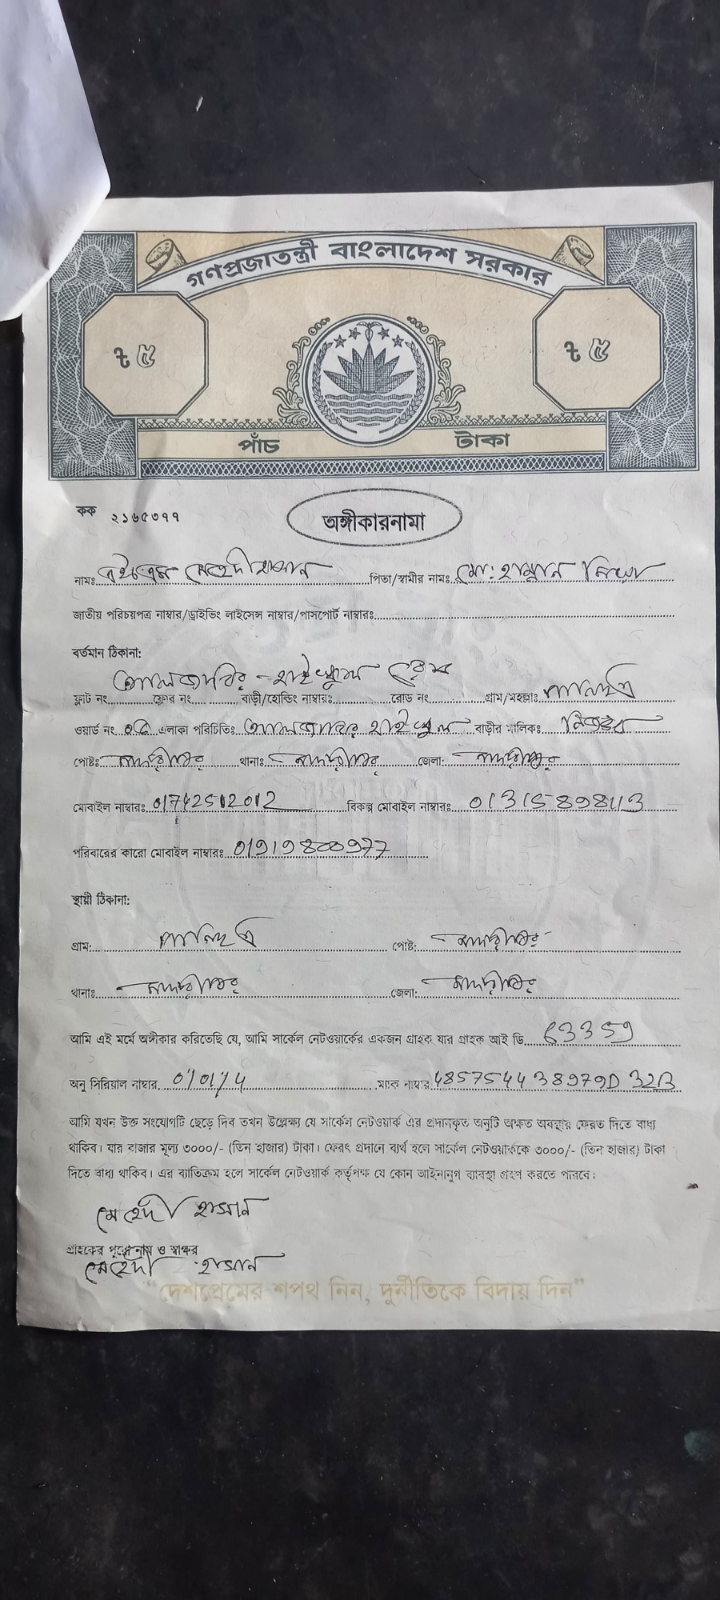 গণপ্রজাতন্ত্রী বাংলাদেশ সরকার
৳ ৫ ৳ ৫
পাঁচ টাকা
কক ২১৬৫৩৭৭
অঙ্গীকারনামা
নামঃ এইচ এম মেহেদী হাসান পিতা/স্বামীর নামঃ মো: হান্নান মিয়া
জাতীয় পরিচয়পত্র নাম্বার/ড্রাইভিং লাইসেন্স নাম্বার/পাসপোর্ট নাম্বারঃ
বর্তমান ঠিকানা:
ফ্লাট নং ফ্লোর নং বাড়ী/হোল্ডিং নাম্বারঃ রোড নং গ্রাম/মহল্লাঃ
ওয়ার্ড নং এলাকা পরিচিতিঃ হাই স্কুল বাড়ীর মালিকঃ নিজস্ব
পোষ্টঃ মাদারীপুর থানাঃ মাদারীপুর জেলা: মাদারীপুর
মোবাইল নাম্বারঃ 01742512012 বিকল্প মোবাইল নাম্বারঃ 01315898113
পরিবারের কারো মোবাইল নাম্বারঃ 01919800977
স্থায়ী ঠিকানা:
গ্রাম: পোষ্ট: মাদারীপুর
থানাঃ মাদারীপুর জেলা: মাদারীপুর
আমি এই মর্মে অঙ্গীকার করিতেছি যে, আমি সার্কেল নেটওয়ার্কের একজন গ্রাহক যার গ্রাহক আই ডি 63359
অনু সিরিয়াল নাম্বার 0/01/4 ম্যাক নাম্বার 485754438979D32B
আমি যখন উক্ত সংযোগটি ছেড়ে দিব তখন উল্লেক্ষ্য যে সার্কেল নেটওয়ার্ক এর প্রদানকৃত অনুটি অক্ষত অবস্থায় ফেরত দিতে বাধ্য
থাকিব। যার বাজার মূল্য ৩০০০/- (তিন হাজার) টাকা। ফেরৎ প্রদানে ব্যর্থ হলে সার্কেল নেটওয়ার্ককে ৩০০০/- (তিন হাজার) টাকা
দিতে বাধ্য থাকিব। এর ব্যতিক্রম হলে সার্কেল নেটওয়ার্ক কর্তৃপক্ষ যে কোন আইনানুগ ব্যবস্থা গ্রহণ করতে পারবে।
মেহেদী হাসান
গ্রাহকের পূর্ণ নাম ও স্বাক্ষর
মেহেদী হাসান
"দেশপ্রেমের শপথ নিন, দুর্নীতিকে বিদায় দিন"